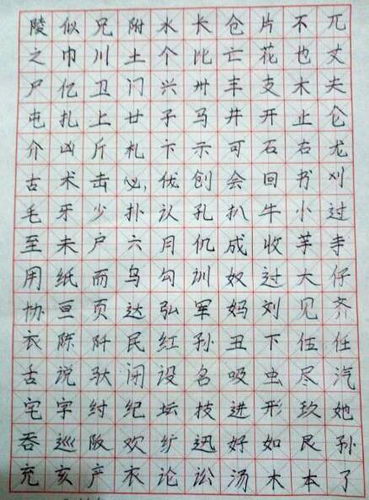 陵似兄附水长仓片不兀
之巾川土个比亡花也丈
尸亿卫门兴卅丰支木夫
屯扎上廿子马井开止仑
介凶斤札卞示可石右龙
古术击必优创会回书刈
毛牙少扑认孔扒牛小过
至未户六月仉成收芋丰
用纸而乌勾圳奴过大仔
协亘页达弘军妈刘见齐
衣陈阡民红孙丑下伍任
舌说驮闭设名吸虫尽汽
宅字纣纪坛技进形玖她
吞巡阪欢纩迅好如艮孙
充亥产衣论讼汤木本了